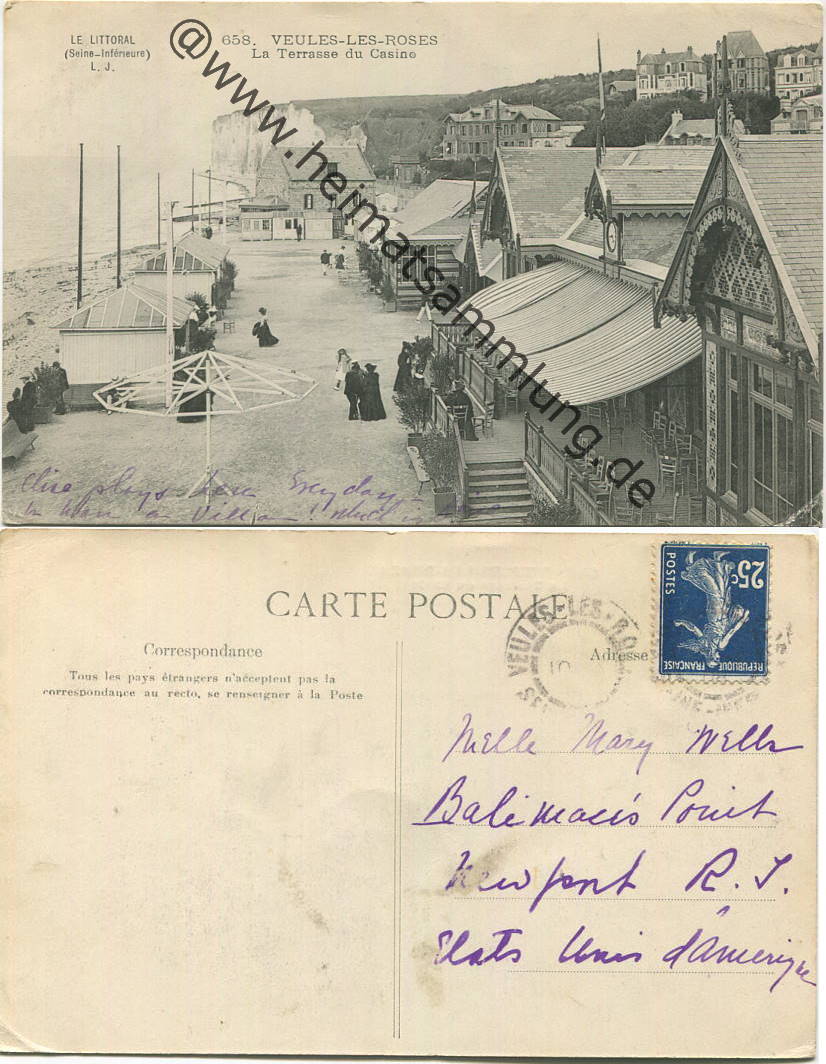 LE LITTORAL
(Seine-Inférieure)
L. J.
658. VEULES-LES-ROSES
La Terrasse du Casino
@www.heimatsammlung.de
plays here Everyday
a Villa
CARTE POSTALE
Correspondance
Tous les pays étrangers n'acceptent pas la
correspondance au recto, se renseigner à la Poste
Adresse
VEULES-LES-RO
25c
POSTES
REPUBLIQUE FRANÇAISE
Melle Mary Wells
Point
Newport R. I.
Etats Unis d'Amerique